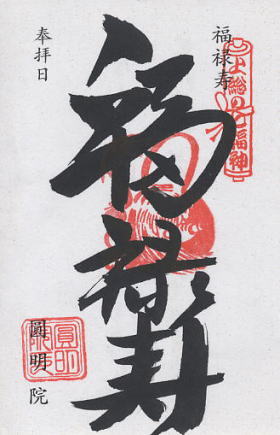 福禄寿
上総の七福神
福禄寿
奉拝日
圓明院
圓明院